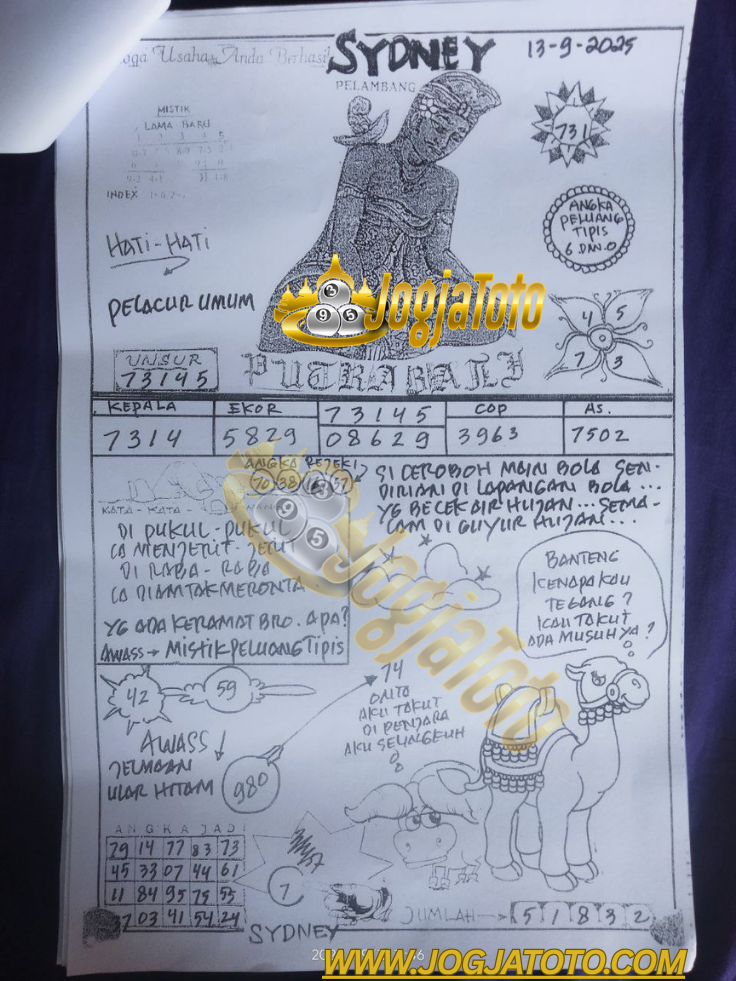 Semoga Usaha Anda Berhasil
SYDNEY
13-9-2025
PELAMBANG
MISTIK
LAMA BARU
INDEX
731
ANGKA
PELUANG
TIPIS
6 DAN 0
HATI-HATI
PELACUR UMUM
JogjaToto
4 5
7 3
UNSUR
73145
PUTRA BALI
KEPALA EKOR 73145 COP AS.
7314 5829 08629 3963 7502
ANGKA REJEKI
70 38 16 57
SI CEROBOH MAIN BOLA SEN-
DIRIAN DI LAPANGAN BOLA...
YG BECEK AIR HUJAN... SEMA-
LAM DI GUYUR HUJAN...
KATA - KATA
DI PUKUL - PUKUL
IA MENJERIT - JERIT
DI RABA - RABA
IA DIAM TAK MERONTA
YG ADA KERAMAT BRO. APA?
AWASS → MISTIK PELUANG TIPIS
JogjaToto
BANTENG
KENAPA KAU
TEGANG?
KAU TAKUT
ADA MUSUH YA?
42
59
74
ONTO
AKU TAKUT
DI PENJARA
AKU SELINGKUH
AWASS
JELMAAN
ULAR HITAM
980
ANGKA JADI
79 14 77 83 73
45 33 07 44 61
11 84 95 75 55
37 03 41 54 24
7
SYDNEY
JUMLAH 5 1 8 3 2
WWW.JOGJATOTO.COM